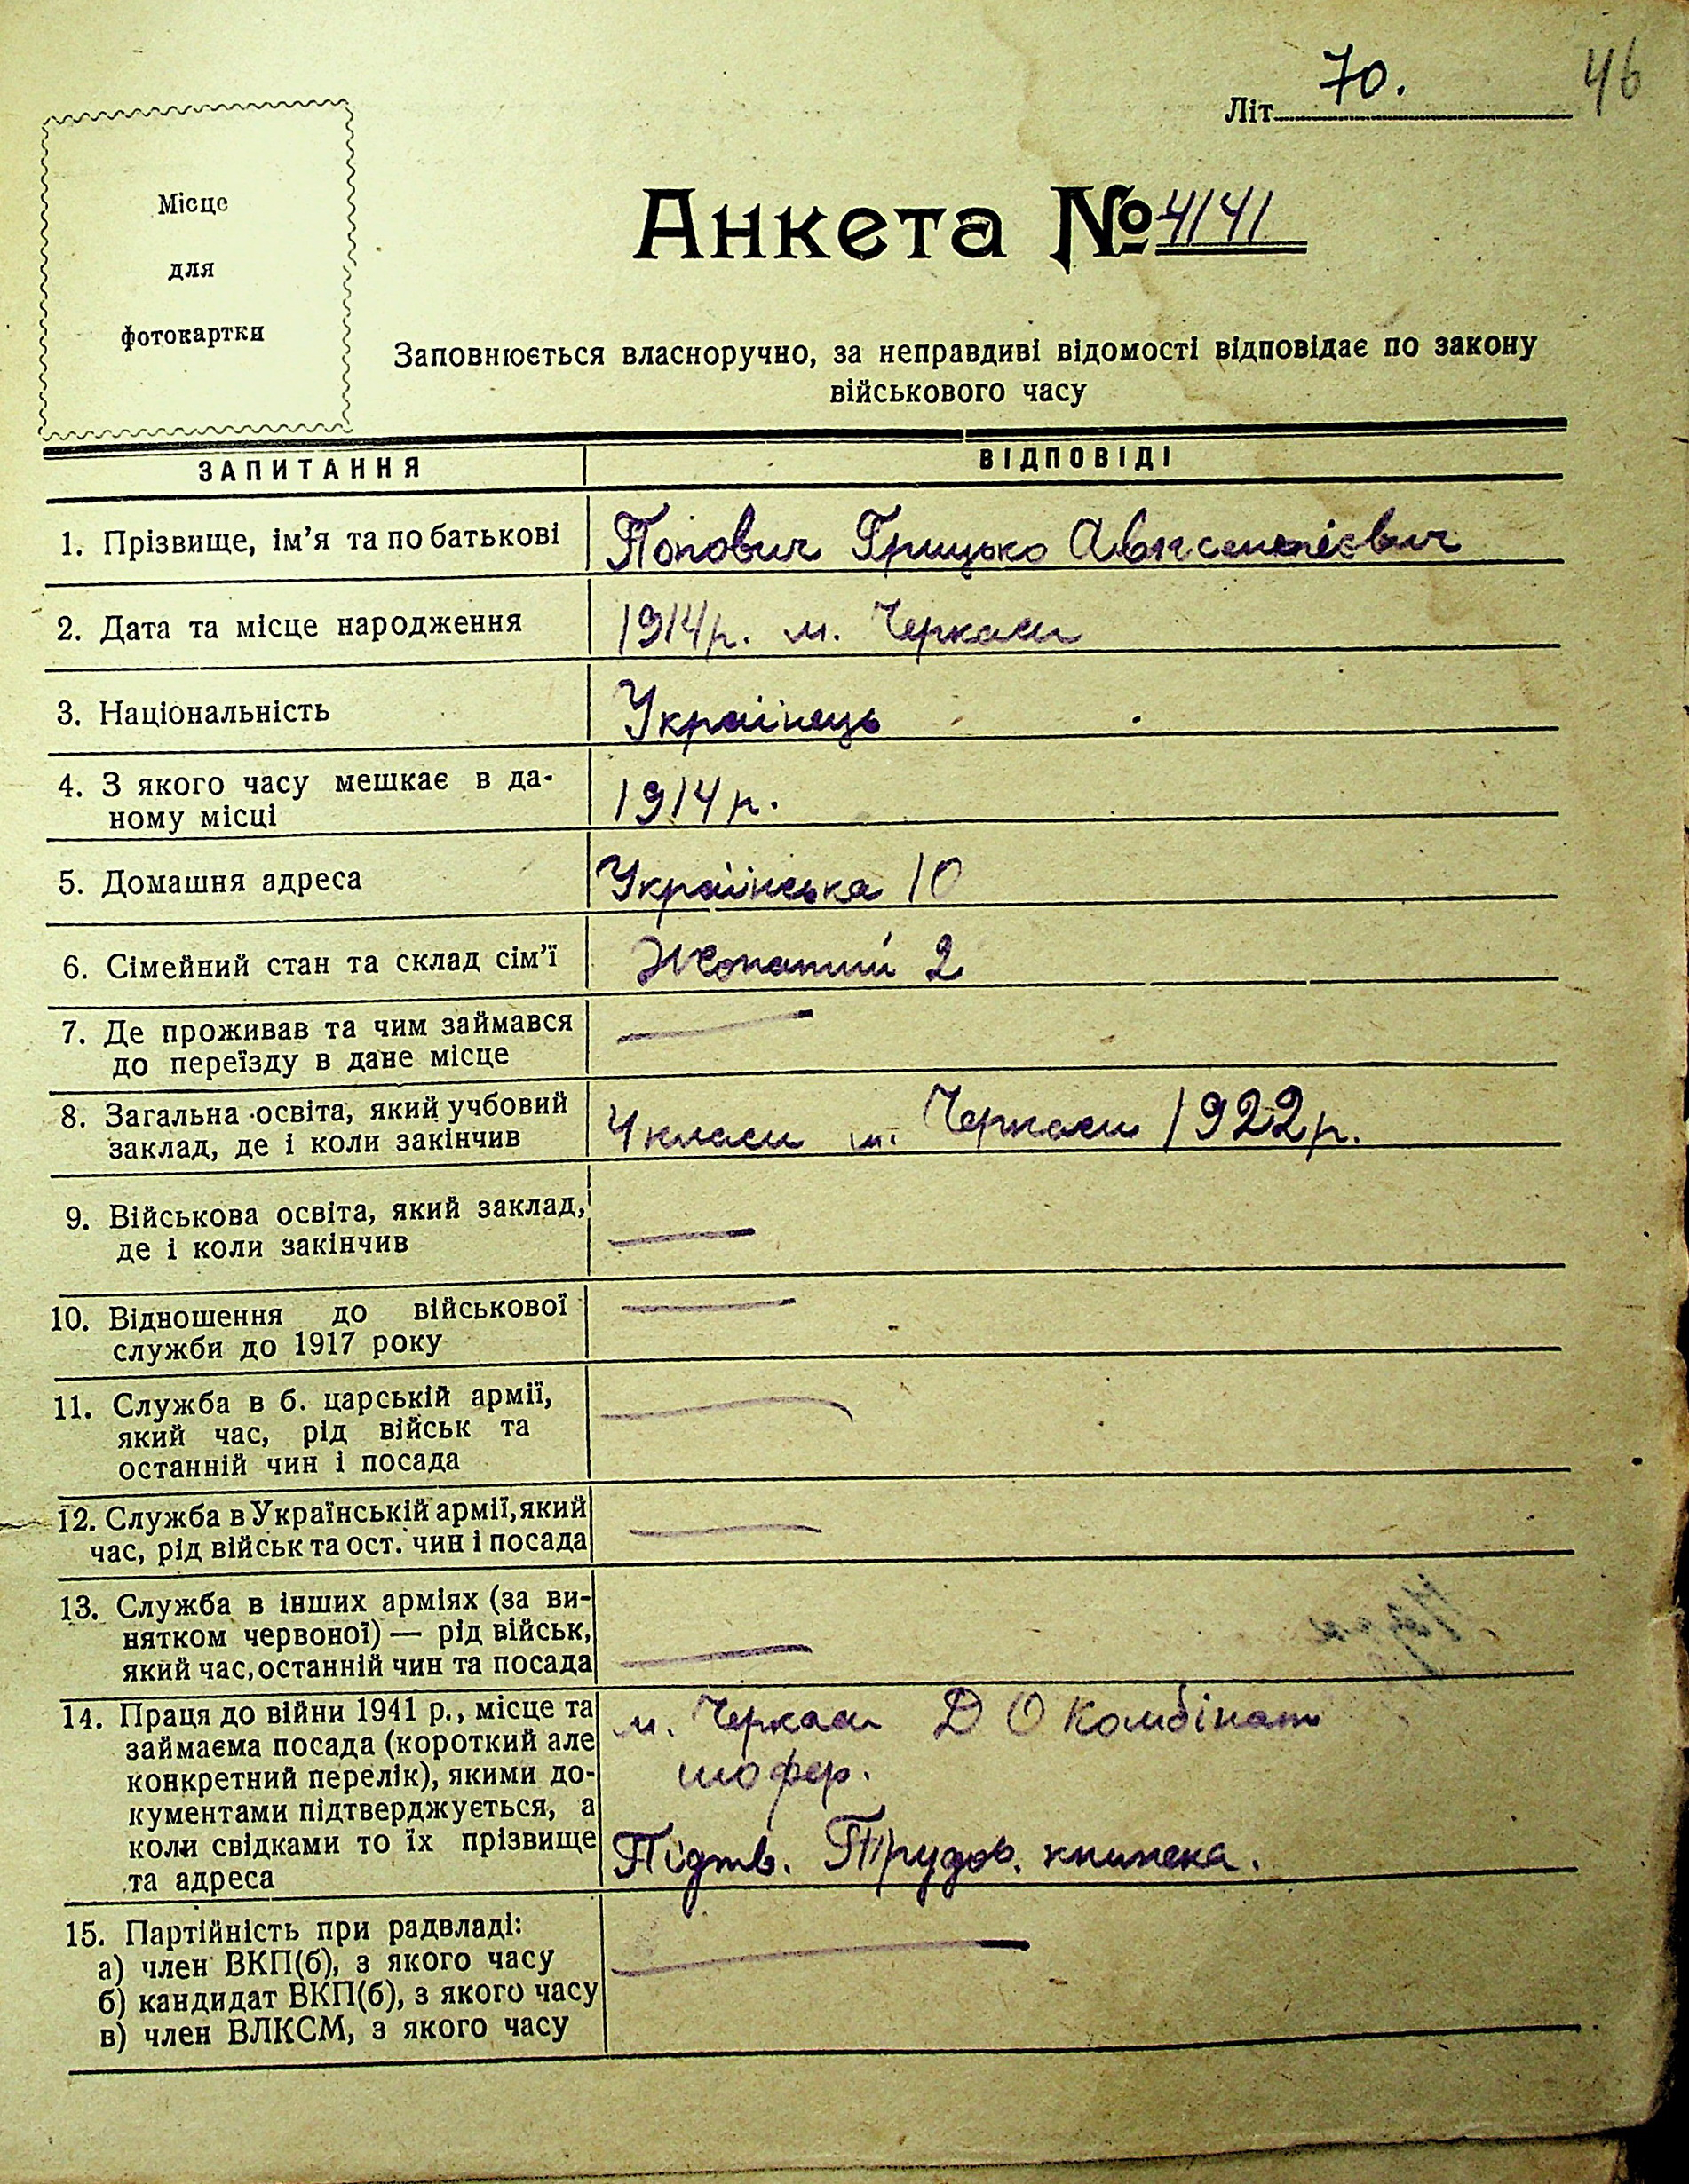 46
Літ 70.
Місце
для
фотокартки
Анкета № 4141
Заповнюється власноручно, за неправдиві відомості відповідає по закону
військового часу
ЗАПИТАННЯ ВІДПОВІДІ
1. Прізвище, ім'я та по батькові Попович Грицько Авксентієвич
2. Дата та місце народження 1914р. м. Черкаси
3. Національність Українець
4. З якого часу мешкає в да-
ному місці 1914р.
5. Домашня адреса Українська 10
6. Сімейний стан та склад сім'ї Жонатий 2
7. Де проживав та чим займався —
до переїзду в дане місце
8. Загальна освіта, який учбовий
заклад, де і коли закінчив 4 класи м. Черкаси 1922р.
9. Військова освіта, який заклад,
де і коли закінчив —
10. Відношення до військової —
служби до 1917 року
11. Служба в б. царській армії, —
який час, рід військ та
останній чин і посада
12. Служба в Українській армії, який —
час, рід військ та ост. чин і посада
13. Служба в інших арміях (за ви-
нятком червоної) — рід військ,
який час, останній чин та посада —
14. Праця до війни 1941 р., місце та м. Черкаси Д О Комбінат
займаєма посада (короткий але
конкретний перелік), якими до- шофер.
кументами підтверджується, а
коли свідками то їх прізвище Підтв. Трудов. книжека.
та адреса
15. Партійність при радвладі:
а) член ВКП(б), з якого часу —
б) кандидат ВКП(б), з якого часу
в) член ВЛКСМ, з якого часу